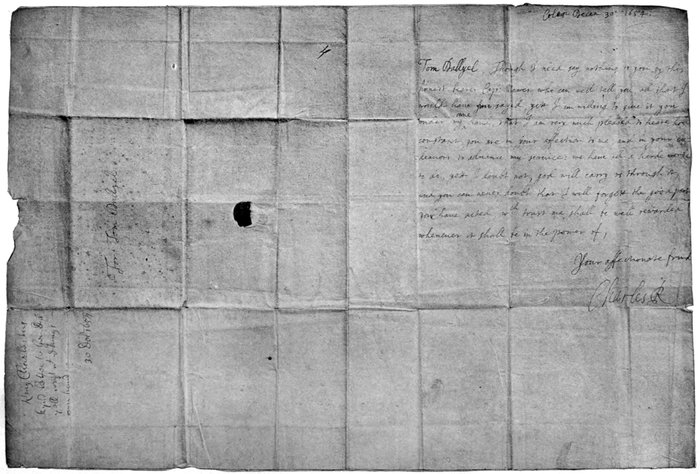 Colen Decem 30. 1654.
4
Tom Dallyel, Though I need say nothing to you by this
honest bearer Capt Meaver, who can well tell you all that I
would have sayed, yett I am willing to give it you
under my owne hand, that I am very well pleased to heare how
constant you are in your affection to me and in your en
deavors to advance my service, we have all a harde worke
to do, yett I doubt not, god will carry us through it,
and you can never doubt that I will forgett the good part
you have acted, wch trust me shall be well rewarded
whenever it shall be in the power of,
Your affectionate frind
Charles R
For Tom Dallyel
King Charles
30 Dec 1654